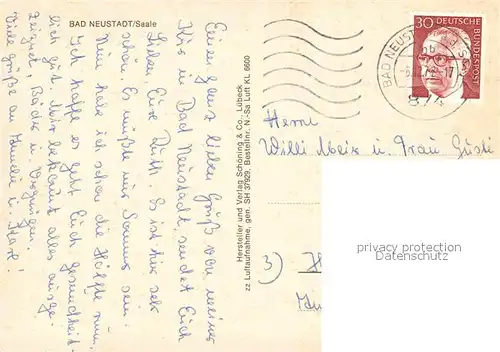 BAD NEUSTADT/Saale
Einen ganz lieben Gruß von meiner
Kur in Bad Neustadt, sendet Euch
Lieben Eure Ruth. Es ist hier sehr
schön. Es müßte nur Sommer sein.
Nun habe ich schon die Hälfte rum.
Ich hoffe es geht Euch gesundheit-
lich gut. Wir bekommt alles ausge-
zeichnet, Bäder u. Vergnügen.
Viele Grüße an Amelie u. Karl!
Hersteller und Verlag Schöning & Co., Lübeck
zz Luftaufnahme, gen. SH 37929, Bestellnr. N.-Sa Luft KL 6600
BAD NEUSTADT
874
30 DEUTSCHE
BUNDESPOST
Herrn
Willi Meix u. Frau Gusti
3)
privacy protection
Datenschutz